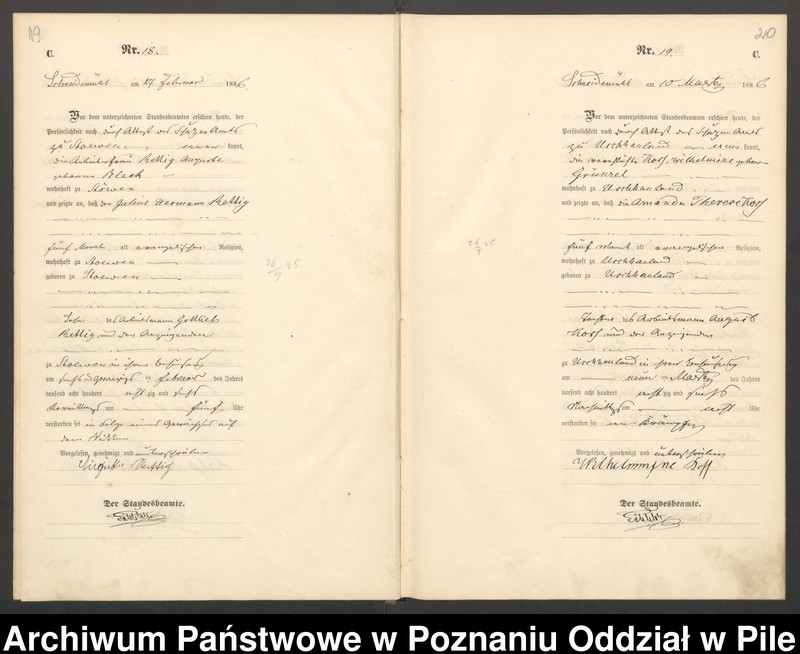 19
C.
Nr. 18.
Schneidemühl am 27 Februar 1886
Vor dem unterzeichneten Standesbeamten erschien heute, der
Persönlichkeit nach durch Attest des Schulzen Amts
zu Stoewen kannt,
die Arbeiterfrau Rettig Auguste
geborene Bleck
wohnhaft zu Stöwen
und zeigte an, daß der Julius Hermann Rettig
fünf Monat alt evangelischer Religion,
wohnhaft zu Stoewen
geboren zu Stoewen
Sohn des Arbeitsmann Gottlieb
Rettig und der Anzeigenden
zu Stoewen in ihrer Behausung
am sechs und zwanzigsten Februar des Jahres
tausend acht hundert achtzig und sechs
Vormittags um fünf Uhr
verstorben sei in Folge eines auf
dem Rücken
Vorgelesen, genehmigt und unterschrieben
Auguste Rettig
Der Standesbeamte.
20
C.
Nr. 19.
Schneidemühl am 10 Maertz 1886
Vor dem unterzeichneten Standesbeamten erschien heute, der
Persönlichkeit nach durch Attest des Schulzen Amts
zu Uschhauland kannt,
die verehelichte Koss, Wilhelmine geborne
Grünzel
wohnhaft zu Uschhauland
und zeigte an, daß die Amanda Therese Koss
fünf Monat alt evangelischer Religion,
wohnhaft zu Uschhauland
geboren zu Uschhauland
Tochter des Arbeitsmann August
Koss und der Anzeigenden
zu Uschhauland in ihrer Behausung
am neun Maertz des Jahres
tausend acht hundert achtzig und sechs
Nachmittags um acht Uhr
verstorben sei an Krämpfen
Vorgelesen, genehmigt und unterschrieben
Wilhelmine Koss
Der Standesbeamte.
Archiwum Państwowe w Poznaniu Oddział w Pile